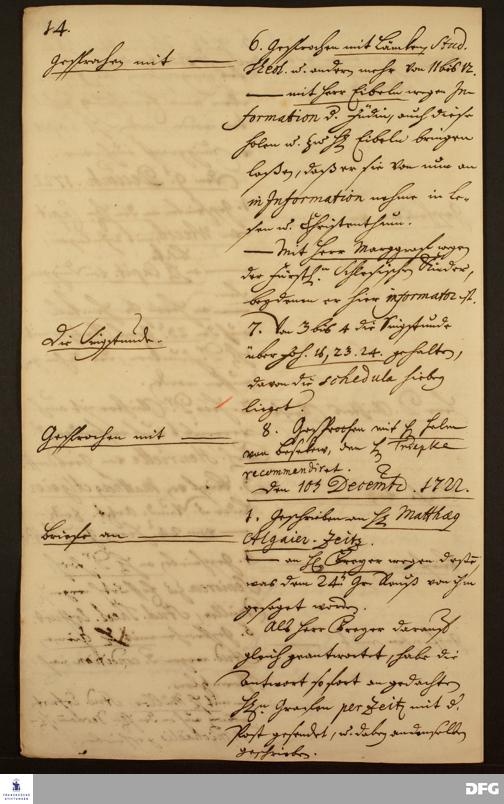 14.
Gesprochen mit
6. Gesprochen mit Stud.
u. andern mehr von 11 bis 12.
mit Herr Eibeln wegen In-
formation d. Jüdin, auch diese
holen u. zu H. Eibeln bringen
laßen, daß er sie von nun an
in Information nehme in Le-
sen u. Christenthum.
Mit Herr Marggraf wegen
der Fürstl. Schlesischen Kinder,
bey denen er hier informator ist.
Die Singstunde.
7. Von 3 bis 4 die Singstunde
über 16, 23. 24. gehalten,
davon die schedula hieben
lieget.
Gesprochen mit
8. Gesprochen mit H. Helm
von den H.
recommendiret.
Den 10t Decembr. 1722.
Briefe an
1. Geschrieben an H. Matthaeg
Algaier. Zeitz.
an H. Greger wegen deßen,
was dem 24. Gr. Reuß von ihm
gesaget worden.
Als Herr Greger darauf
gleich geantwortet, habe die
Antwort sofort an gedachten
Hn Grafen per Zeitz mit d.
Post gesendet, u. dabey an denselben
geschrieben.
FRANCKESCHE STIFTUNGEN
DFG